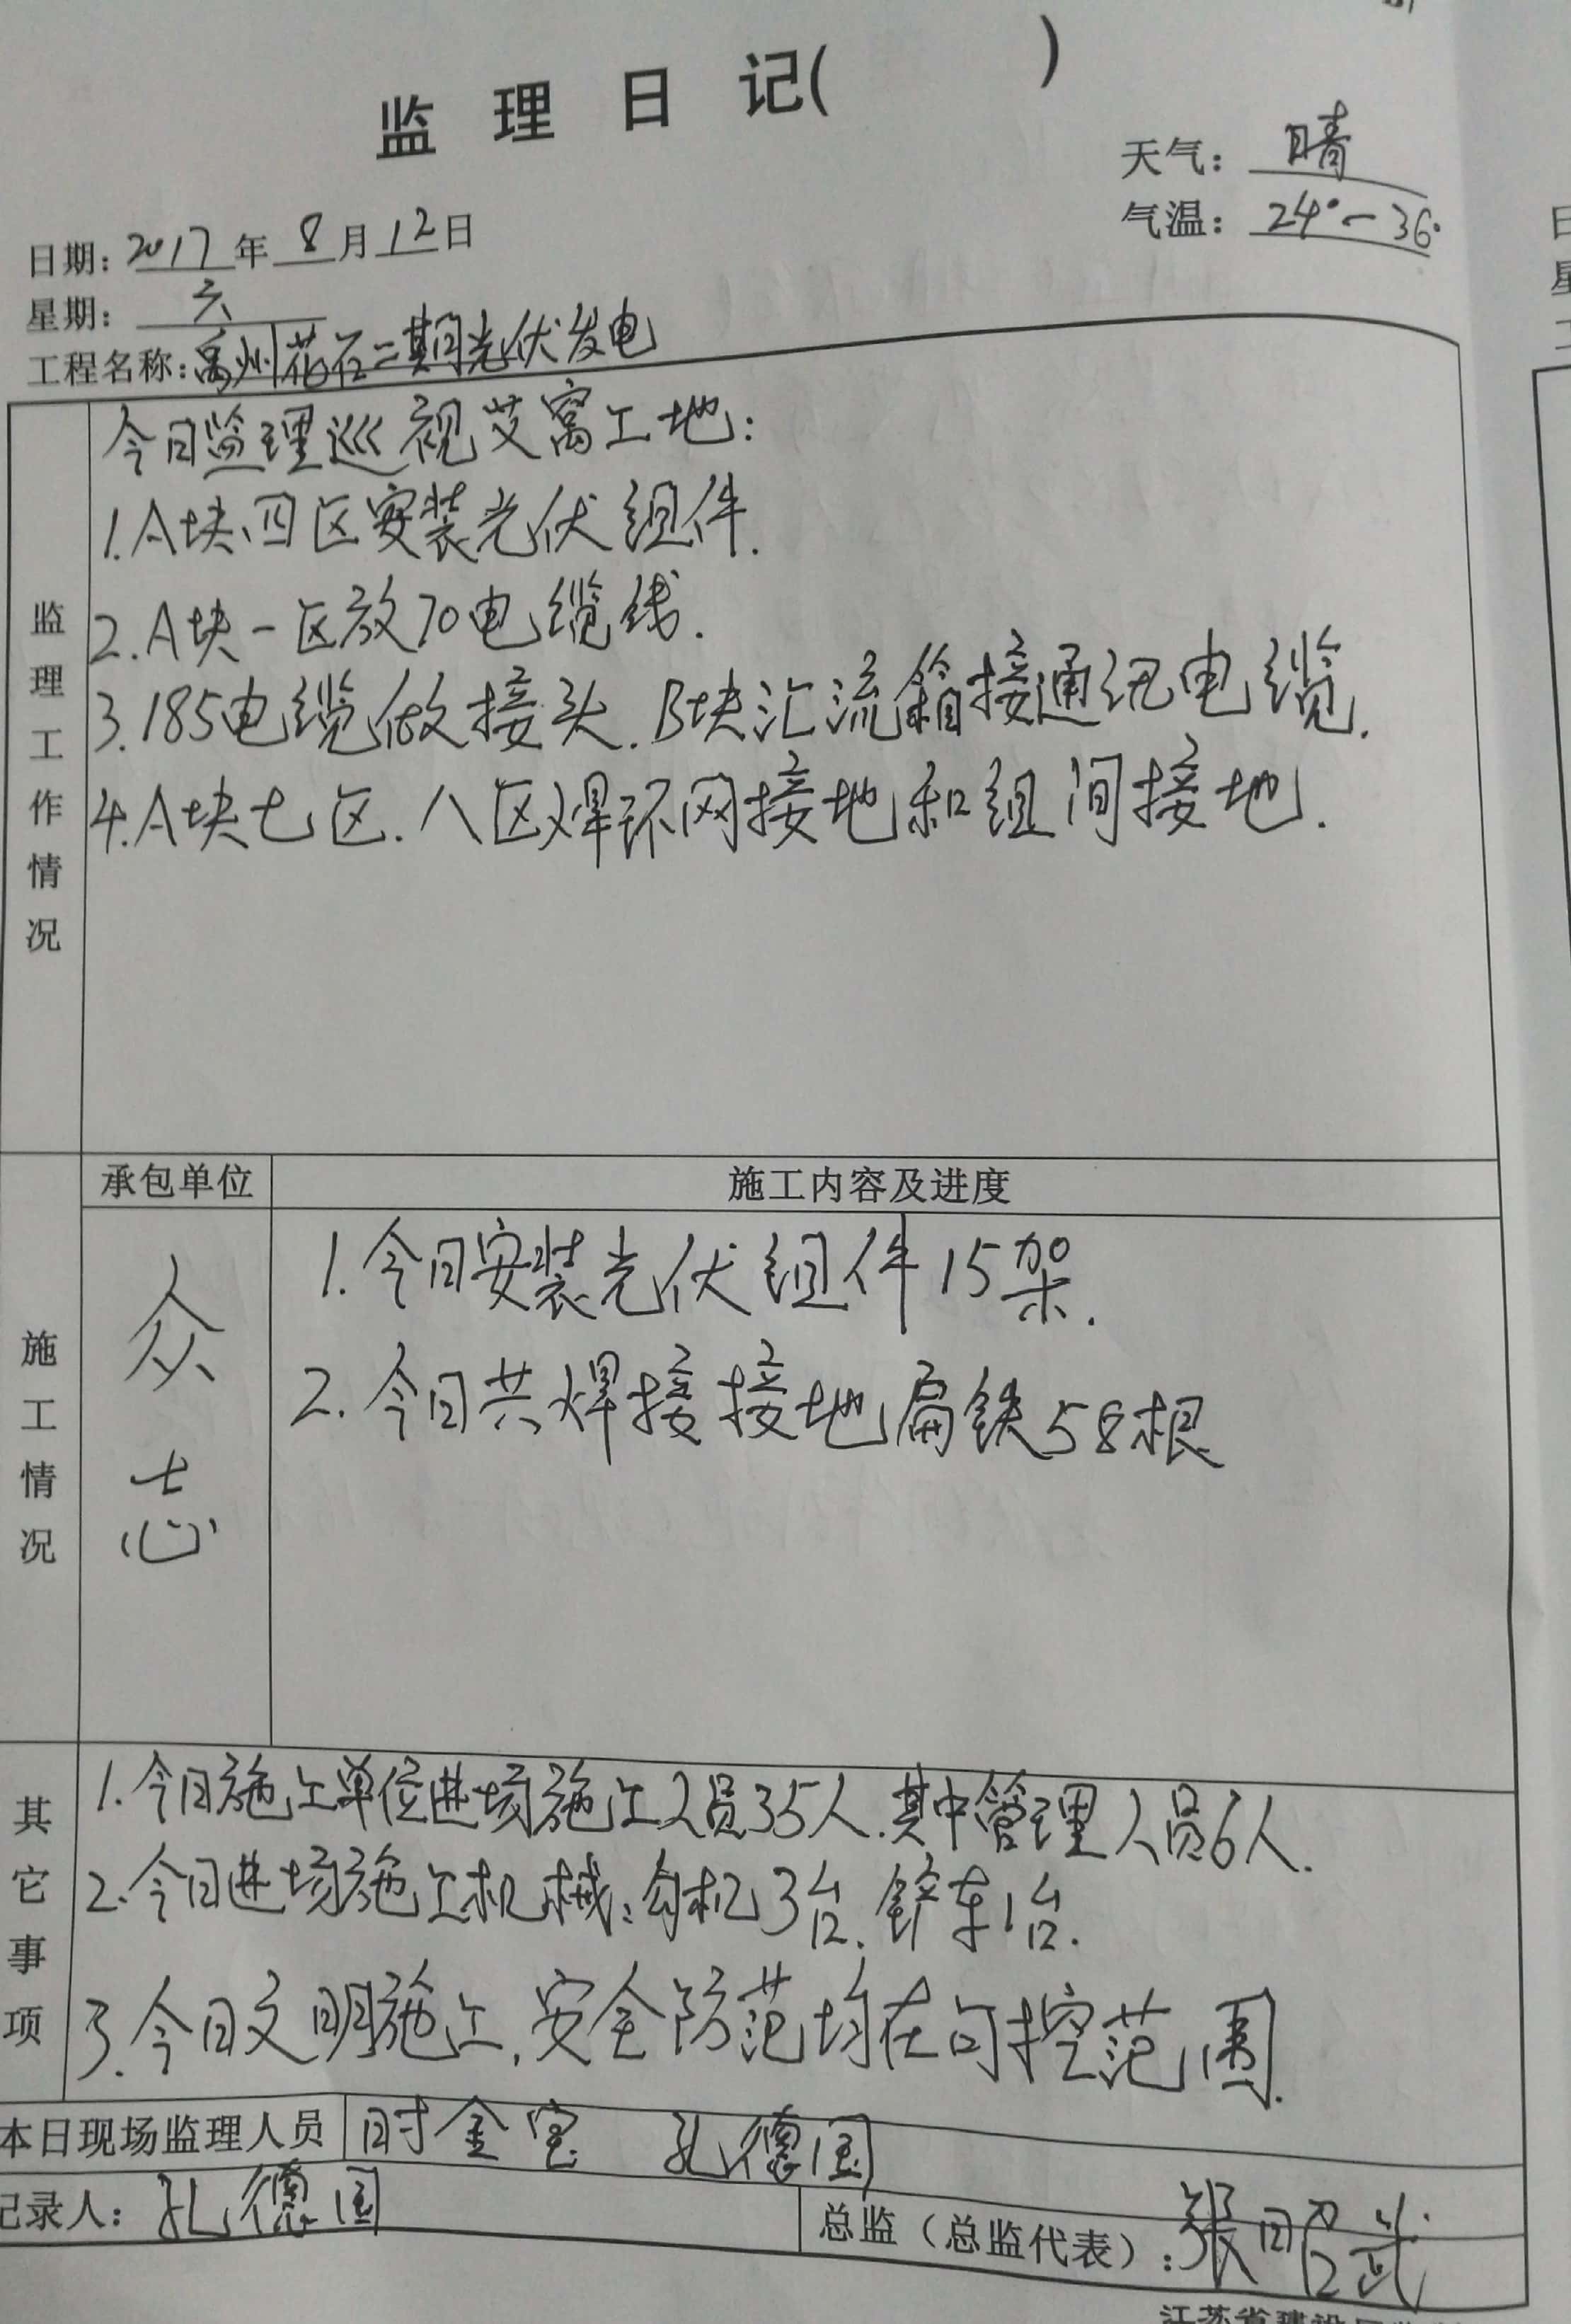 监理日记(        )
天气：晴
气温：24°-36°
日期：2017年8月12日
星期：六
工程名称：禹州花石二期光伏发电
监理工作情况
今日监理巡视艾窝工地：
1.A块四区安装光伏组件.
2.A块一区放70电缆线.
3.185电缆做接头.B块汇流箱接通讯电缆.
4.A块七区.八区焊环网接地和组间接地.
施工情况
承包单位
施工内容及进度
众志
1.今日安装光伏组件15架.
2.今日共焊接接地扁铁58根
其它事项
1.今日施工单位进场施工人员35人.其中管理人员6人.
2.今日进场施工机械:勾机3台.铲车1台.
3.今日文明施工,安全防范均在可控范围.
本日现场监理人员 时金宝 孔德国
记录人：孔德国
总监（总监代表）：张